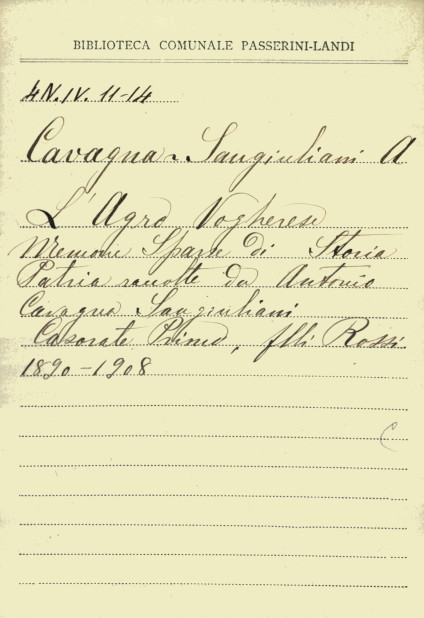 BIBLIOTECA COMUNALE PASSERINI-LANDI
4N.IV. 11-14
Cavagna-Sangiuliani A
L'Agro Vogherese
Memorie Sparse di Storia
Patria raccolte da Antonio
Cavagna Sangiuliani
Casorate Primo, flli Rossi
1890-1908